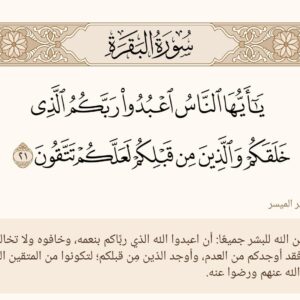 سُورَةُ الْبَقَرَةِ
يَٰٓأَيُّهَا ٱلنَّاسُ ٱعْبُدُوا۟ رَبَّكُمُ ٱلَّذِى
خَلَقَكُمْ وَٱلَّذِينَ مِن قَبْلِكُمْ لَعَلَّكُمْ تَتَّقُونَ ٢١
ر الميسر
ن الله للبشر جميعًا: أن اعبدوا الله الذي ربَّاكم بنعمه، وخافوه ولا تخال
فقد أوجدكم من العدم، وأوجد الذين مِن قبلكم؛ لتكونوا من المتقين ال
الله عنهم ورضوا عنه.